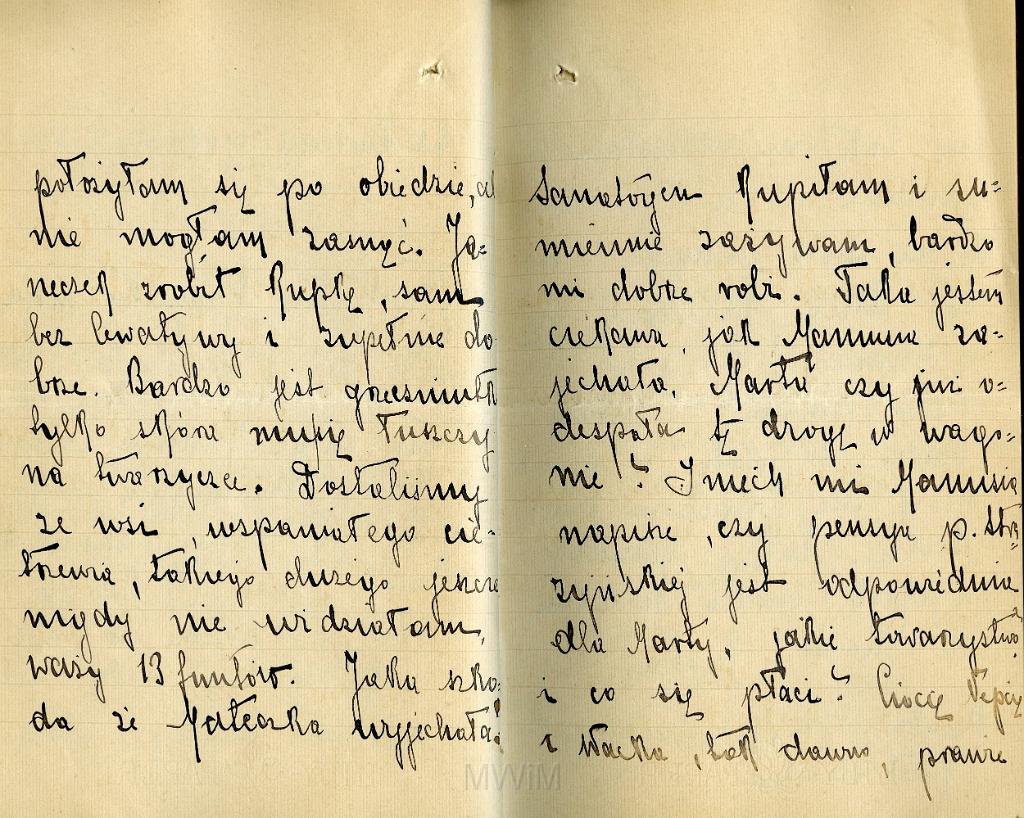 położyłam się po obiedzie, al
nie mogłam zasnąć. Ja-
neczek zrobił kupkę, sam
bez lewatywy i zupełnie do
brze. Bardzo jest grzeczniutk
tylko skóra mu się łuszczy
na twarzyczce. Dostaliśmy
ze wsi, wspaniałego cie-
trzewia, takiego dużego jeszcze
nigdy nie widziałam,
waży 13 funtów. Jaka szko-
da że Mateczka wyjechała!
Sanatogen kupiłam i su-
miennie zażywam, bardzo
mi dobrze robi. Taka jestem
ciekawa, jak Mamunia za-
jechała, Marta czy już o-
despała tę drogę w wago-
nie? I niech mi Mamusia
napisze, czy pensya p.
jest odpowiednia
dla Marty, jakie towarzystwo
i co się płaci? Ciocię
i Wacka, tak dawno, prawie
MWiM